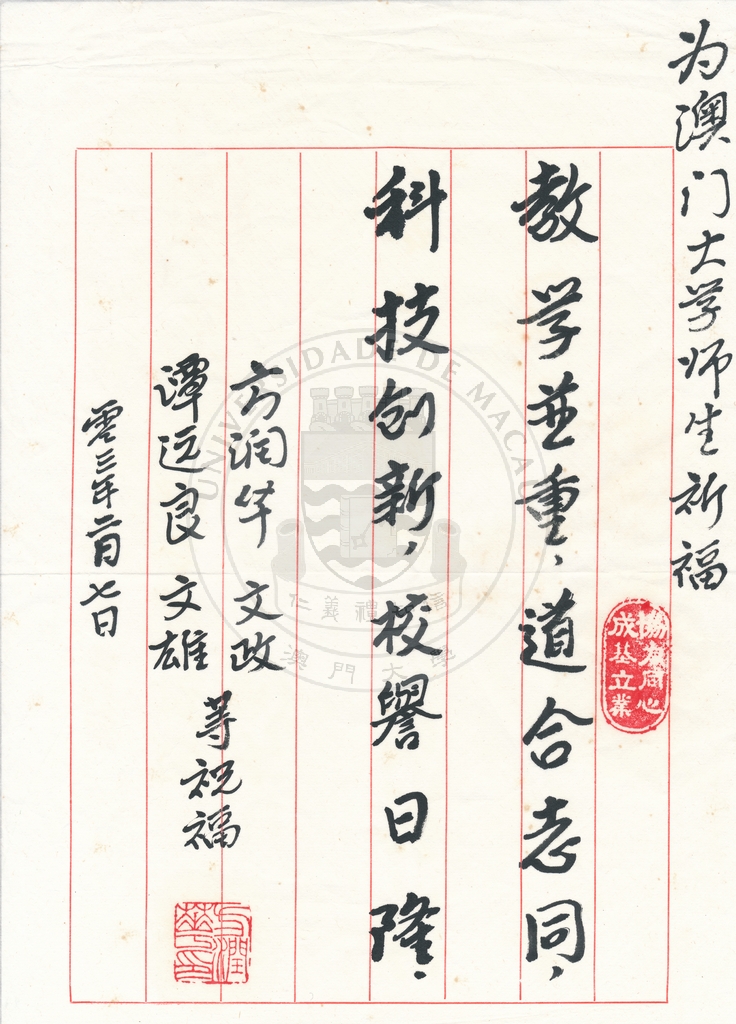 为澳门大学师生祈福
教学並重，道合志同，
科技创新，校譽日隆．
方润华 文政
譚远良 文雄
等祝福
零三年二月七日
協力同心
成基立業
方潤華印
UNIVERSIDADE DE MACAU
仁義禮智信
澳門大學